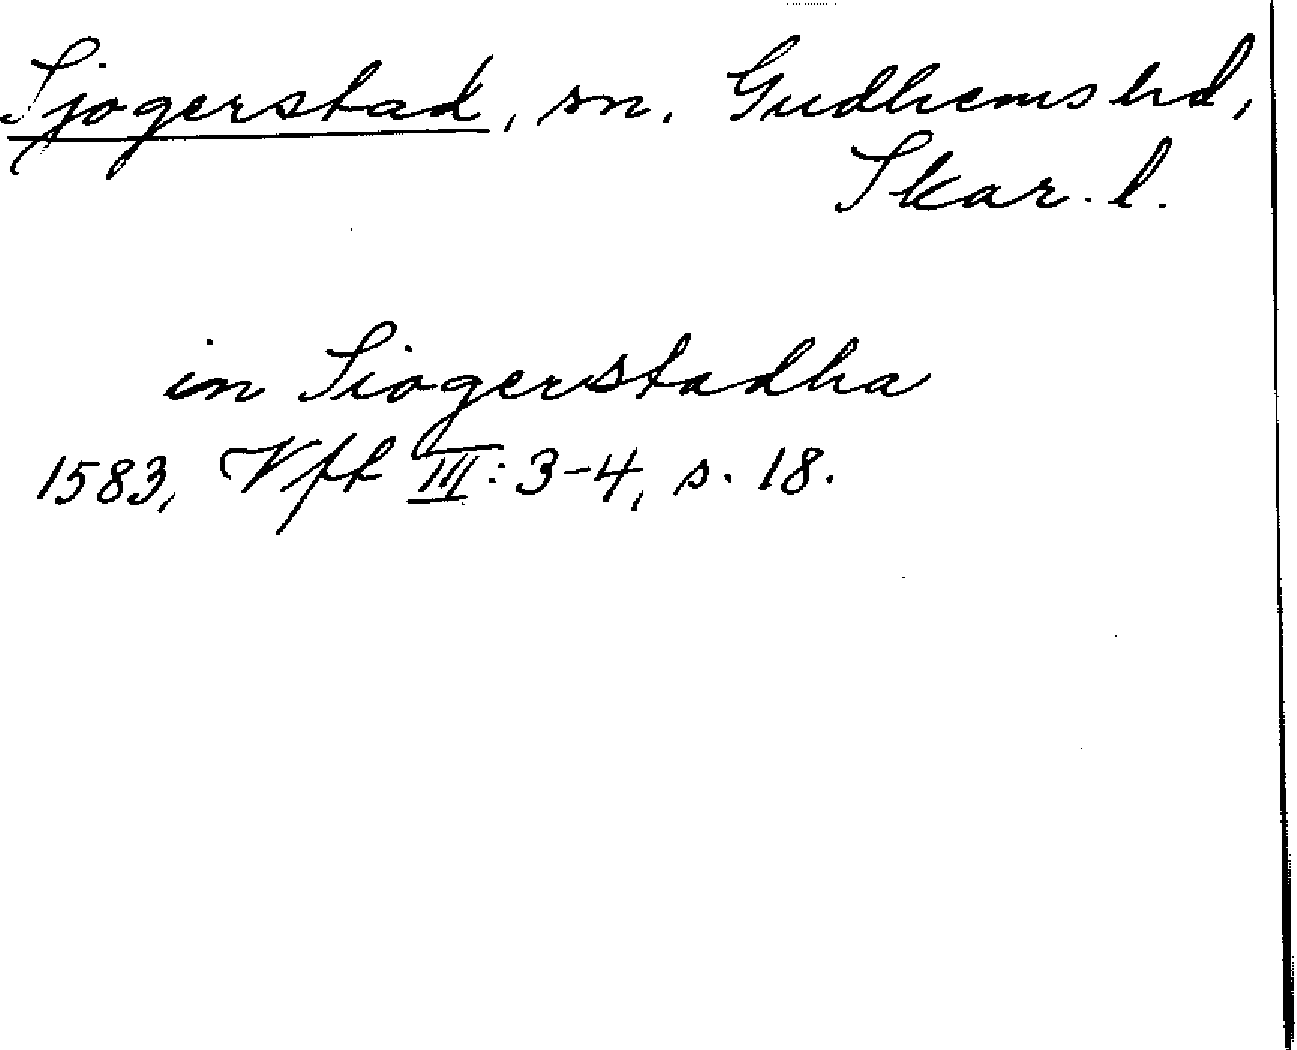 Sjogerstad, sn. Gudhems hd,
Skar. l.
in Siogerstadha
1583, Vft III: 3-4, s. 18.